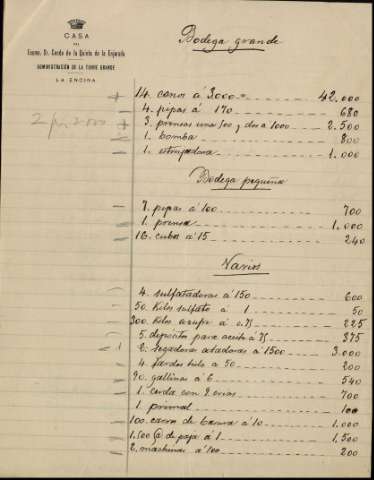 CASA
DEL
Excmo. Sr. Conde de la Quinta de la Enjarada
ADMINISTRACIÓN DE LA TORRE GRANDE
LA ENCINA
Bodega grande
14. conos á 3000 = 42.000
4. pipas á 170 680
3. prensas una 500 y dos a 1000 2.500
1. bomba 800
1. estrujadora 1.000
Bodega pequeña
7. pipas á 100 700
1. prensa 1.000
16. cubas á 15 240
Varios
4. sulfatadoras á 150 600
50. Kilos sulfato á 1 50
300. Kilos azufre á 0.75 225
5. depósitos para aceite á 75 375
2. Segadoras atadoras á 1500 3.000
4. fardos hilo a 50 200
90. gallinas á 6 540
1. cerda con 9 crias 700
1. primal 100
100. carros de basura á 10 1.000
1.500 @ de paja á 1 1.500
2. á 100 200